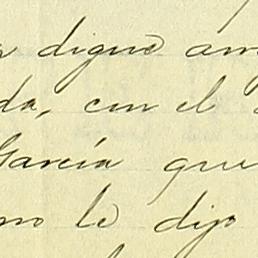 digno am
da, con el
García que
no le dijo